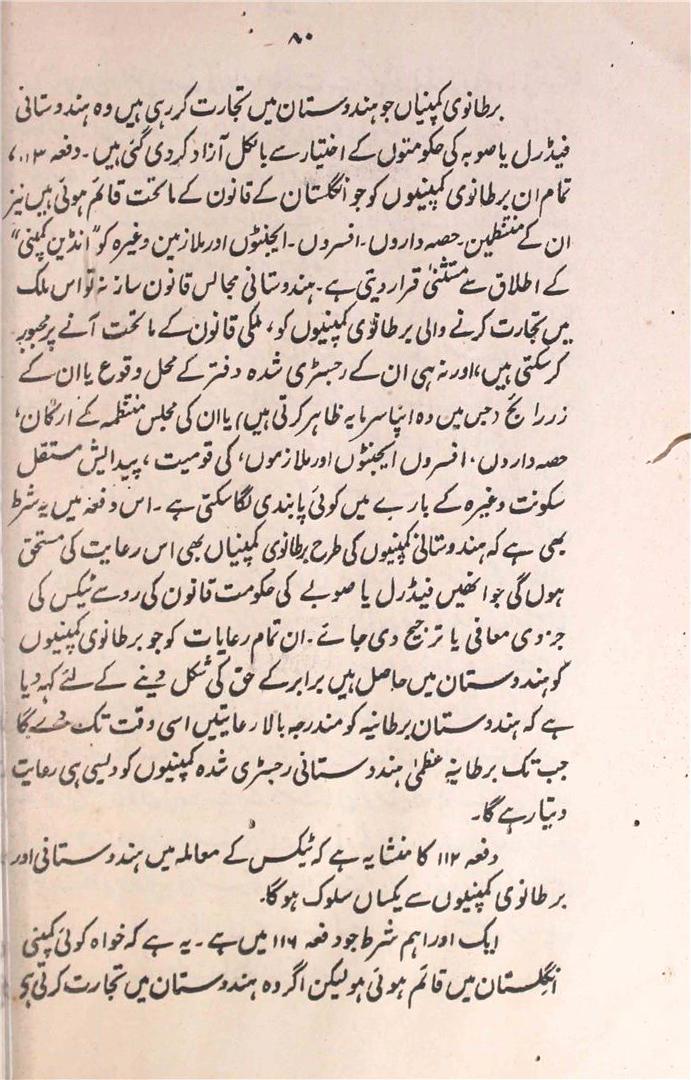 ۸۰
برطانوی کمپنیاں جو ہندوستان میں تجارت کر رہی ہیں وہ ہندوستانی
فیڈرل یا صوبہ کی حکومتوں کے اختیار سے بالکل آزاد کر دی گئی ہیں۔ دفعہ ۱۱۳،
تمام ان برطانوی کمپنیوں کو جو انگلستان کے قانون کے ماتحت قائم ہوئی ہیں نیز
ان کے منتظمین۔ حصہ داروں۔ افسروں۔ ایجنٹوں اور ملازمین وغیرہ کو "انڈین کمپنی"
کے اطلاق سے مستثنیٰ قرار دیتی ہے۔ ہندوستانی مجالس قانون ساز نہ تو اس ملک
میں تجارت کرنے والی برطانوی کمپنیوں کو، ملکی قانون کے ماتحت آنے پر مجبور
کر سکتی ہیں، اور نہ ہی ان کے رجسٹری شدہ دفتر کے محل وقوع یا ان کے
زر رائج (جس میں وہ اپنا سرمایہ ظاہر کرتی ہیں) یا ان کی مجلس منتظمہ کے ارکان،
حصہ داروں، افسروں ایجنٹوں اور ملازموں، کی قومیت، پیدایش مستقل
سکونت وغیرہ کے بارے میں کوئی پابندی لگا سکتی ہے۔ اس دفعہ میں یہ شرط
بھی ہے کہ ہندوستانی کمپنیوں کی طرح برطانوی کمپنیاں بھی اس رعایت کی مستحق
ہوں گی جو انھیں فیڈرل یا صوبے کی حکومت قانون کی رو سے ٹیکس کی
جزوی معافی یا ترجیح دی جائے۔ ان تمام رعایات کو جو برطانوی کمپنیوں
کو ہندوستان میں حاصل ہیں برابر کے حق کی شکل دینے کے لئے کہہ دیا
ہے کہ ہندوستان برطانیہ کو مندرجہ بالا رعایتیں اسی وقت تک دے گا
جب تک برطانیۂ عظمیٰ ہندوستانی رجسٹری شدہ کمپنیوں کو ویسی ہی رعایت
دیتا رہے گا۔
دفعہ ۱۱۲ کا منشا یہ ہے کہ ٹیکس کے معاملہ میں ہندوستانی اور
برطانوی کمپنیوں سے یکساں سلوک ہو گا۔
ایک اور اہم شرط جو دفعہ ۱۱۶ میں ہے۔ یہ ہے کہ خواہ کوئی کمپنی
انگلستان میں قائم ہوئی ہو لیکن اگر وہ ہندوستان میں تجارت کرتی ہو